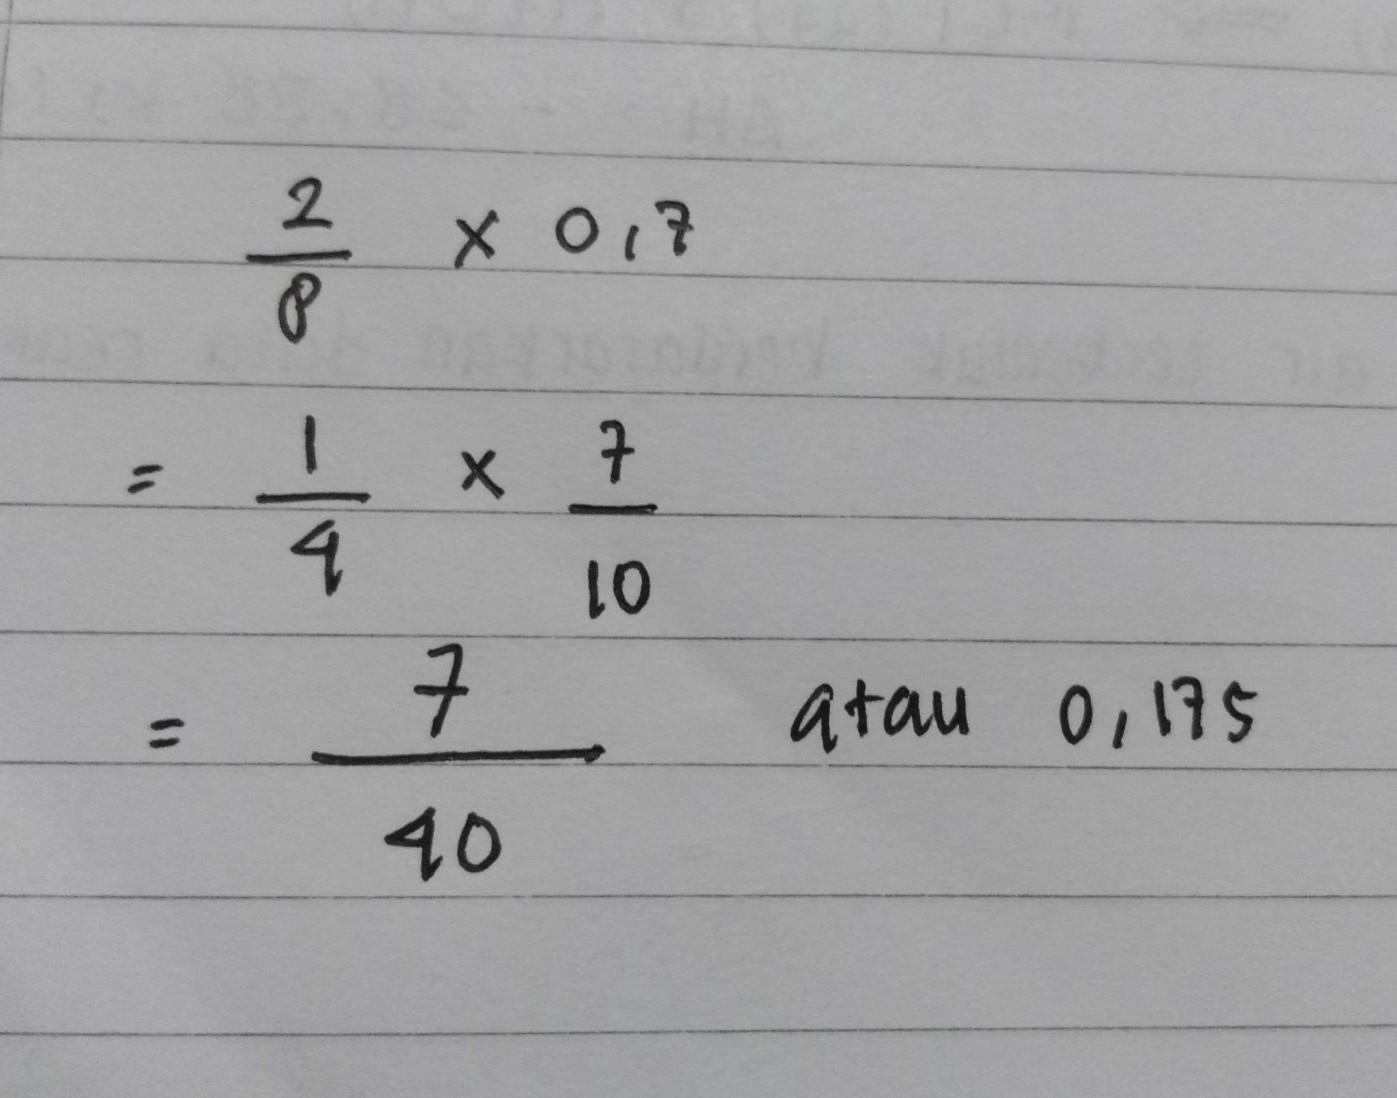 2/8 x 0,7
= 1/4 x 7/10
= 7/40 atau 0,175